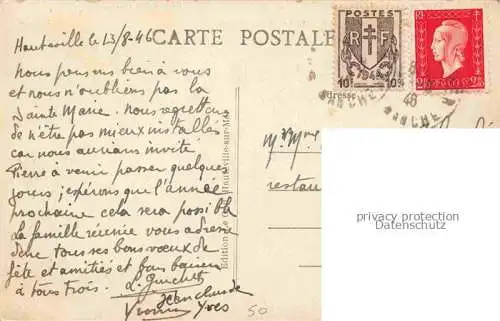 Hauteville le 13/8-46
CARTE POSTALE
Nous pensons bien à vous
et nous n'oublions pas la
Sainte Marie. Nous regrettons
de n'être pas mieux installés
car nous aurions invité
Pierre à venir passer quelques
jours; espérons que l'année
prochaine cela sera possible
La famille réunie vous adresse
donc tous ses bons vœux de
fête et amitiés et bons baisers
à tous trois.
Yvonne Yves
POSTES
RF
10c 1944 10c
RF
2F 2F
46
MANCHE
Adresse
Hauteville-sur-Mer
M. Mme
restau
privacy protection
Datenschutz
50